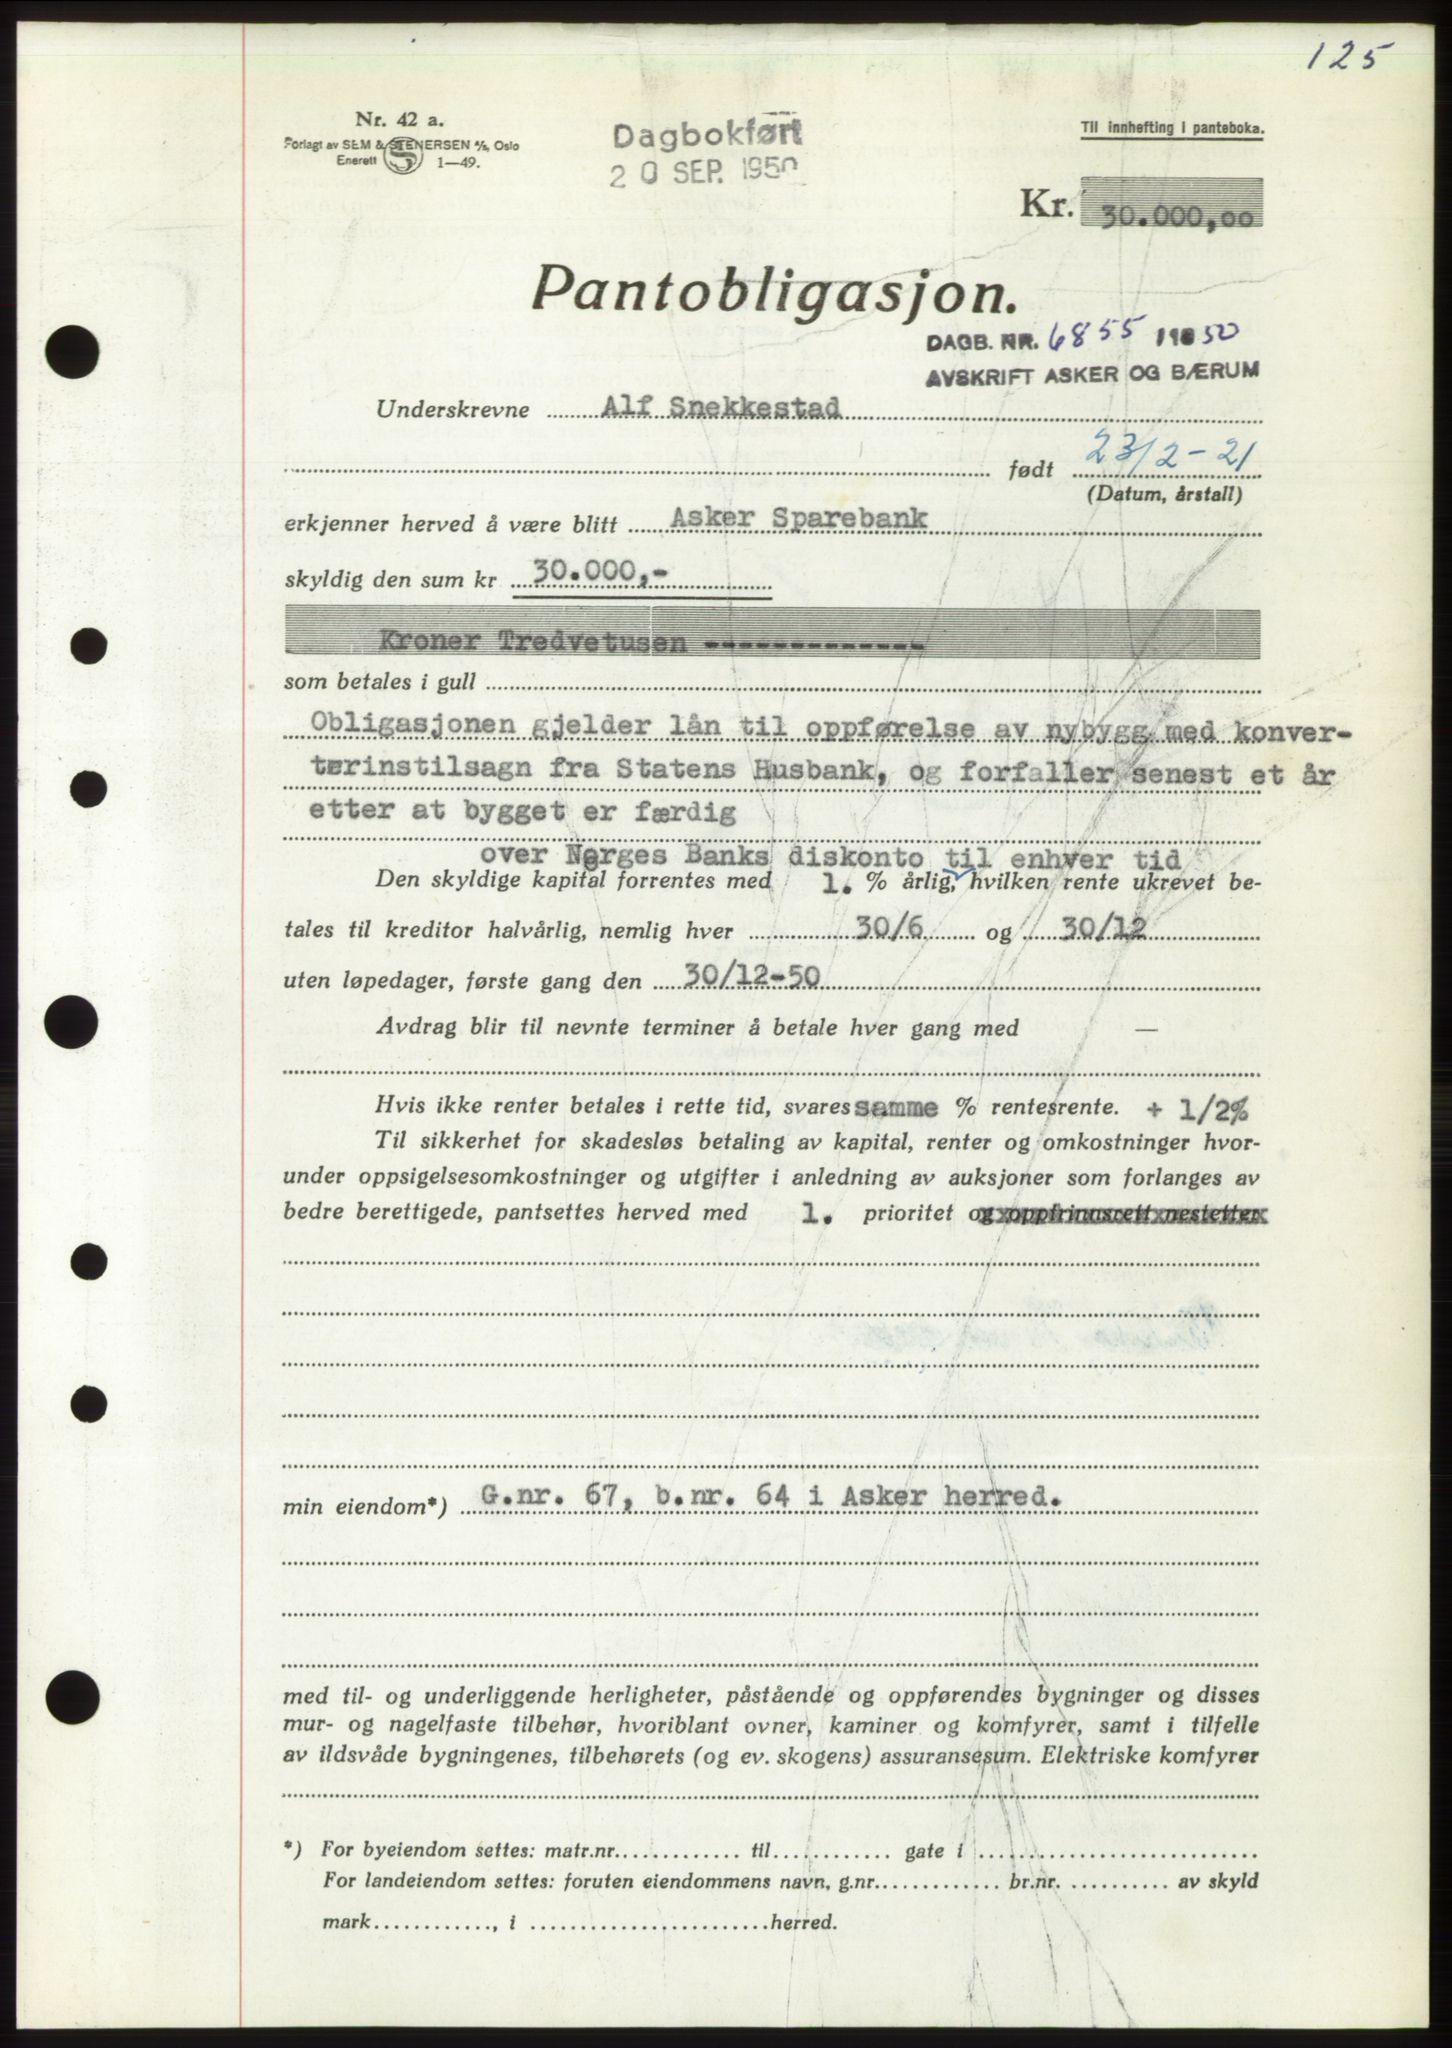 125
Nr. 42 a.
Forlagt av SEM & STENERSEN A/S, Oslo
Enerett S 1—49.
Dagbokført
20 SEP. 1950
Til innhefting i panteboka.
Kr. 30.000,00
Pantobligasjon.
DAGB. NR. 6855 1950
AVSKRIFT ASKER OG BÆRUM
Underskrevne Alf Snekkestad
født 23/2-21
(Datum, årstall)
erkjenner herved å være blitt Asker Sparebank
skyldig den sum kr 30.000,-
Kroner Tredvetusen -------------
som betales i gull
Obligasjonen gjelder lån til oppførelse av nybygg med konver-
terinstilsagn fra Statens Husbank, og forfaller senest et år
etter at bygget er færdig
over Norges Banks diskonto til enhver tid
Den skyldige kapital forrentes med 1. % årlig, hvilken rente ukrevet be-
tales til kreditor halvårlig, nemlig hver 30/6 og 30/12
uten løpedager, første gang den 30/12-50
Avdrag blir til nevnte terminer å betale hver gang med —
Hvis ikke renter betales i rette tid, svares samme % rentesrente. + 1/2%
Til sikkerhet for skadesløs betaling av kapital, renter og omkostninger hvor-
under oppsigelsesomkostninger og utgifter i anledning av auksjoner som forlanges av
bedre berettigede, pantsettes herved med 1. prioritet og opptrinnsrett nestetter
min eiendom*) G.nr. 67, b.nr. 64 i Asker herred.
med til- og underliggende herligheter, påstående og oppførendes bygninger og disses
mur- og nagelfaste tilbehør, hvoriblant ovner, kaminer og komfyrer, samt i tilfelle
av ildsvåde bygningenes, tilbehørets (og ev. skogens) assuransesum. Elektriske komfyrer
*) For byeiendom settes: matr.nr............. til............ gate i ............................
For landeiendom settes: foruten eiendommens navn, g.nr............. br.nr. .......... av skyld
mark............, i ........................herred.